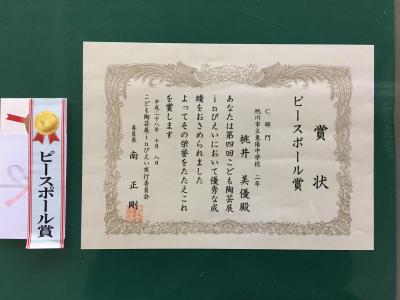 賞状
ピースポール賞
C部門
旭川市立東陽中学校 二年
桃井 美優殿
あなたは第四回こども陶芸展
inびえいにおいて優秀な成
績をおさめられました
よってその栄誉をたたえこれ
を賞します
平成二十八年 十月 八日
こども陶芸展inびえい実行委員会
委員長 南 正剛
ピースポール賞